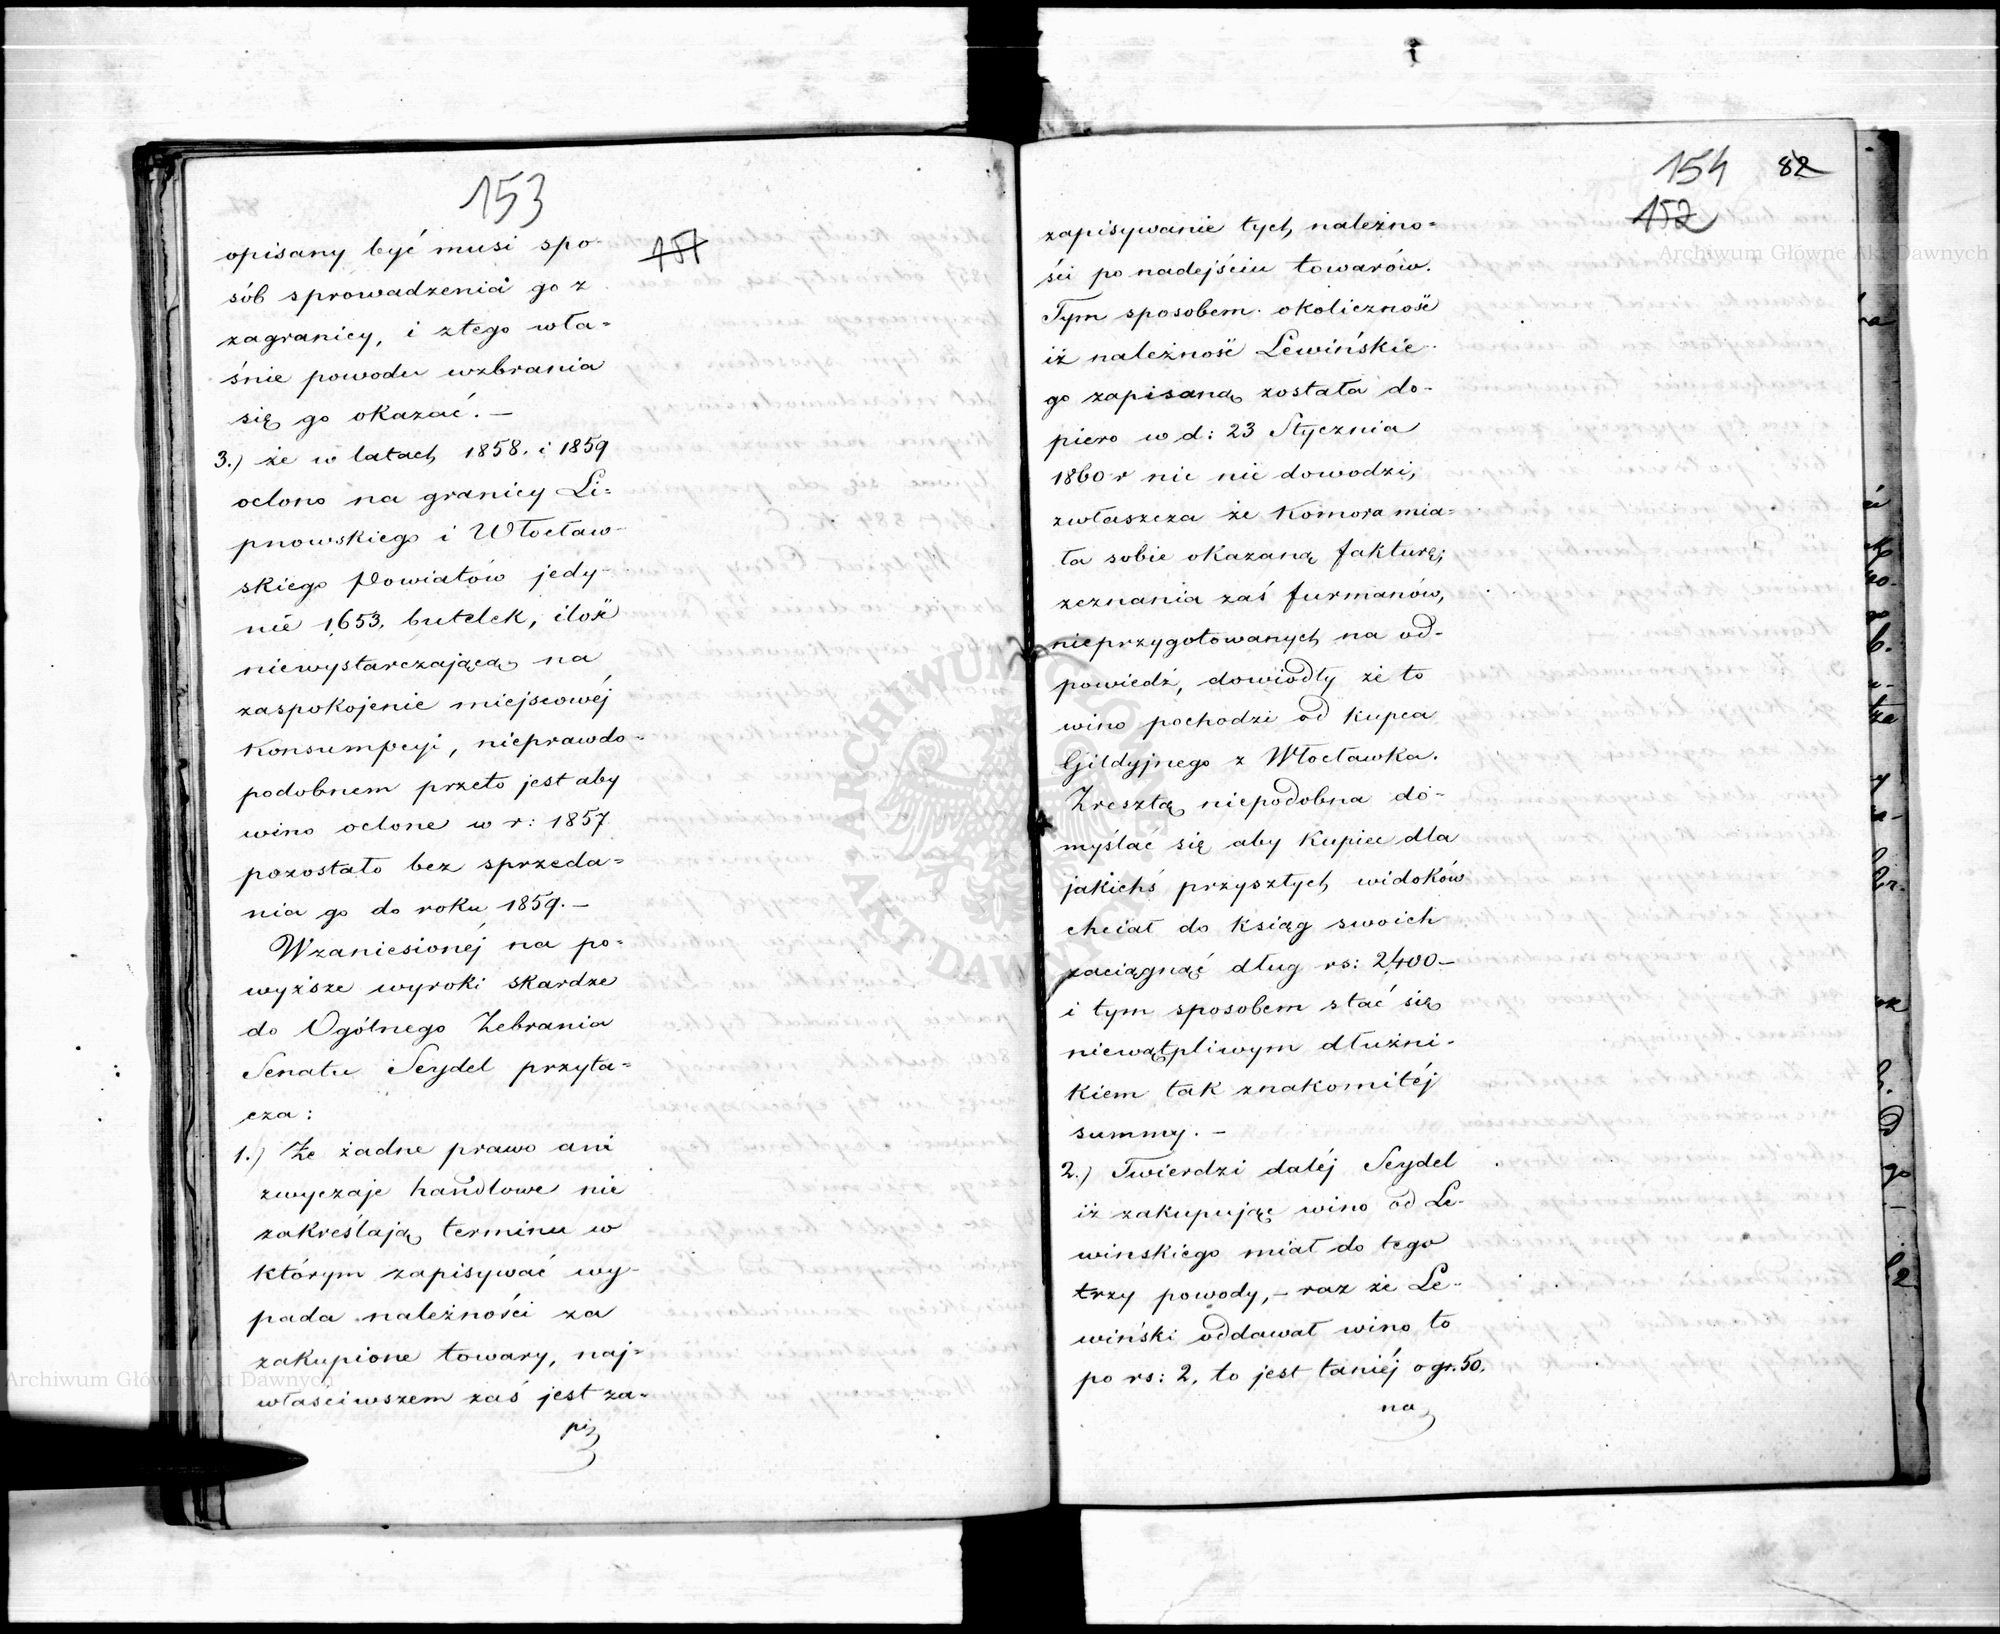 153
151
opisany być musi spo-
sób sprowadzenia go z
zagranicy, i ztego wła=
śnie powodu wzbrania
się go okazać. —
3.) że w latach 1858. i 1859
oclono na granicy Li=
pnowskiego i Włocław-
skiego Powiatów jedy-
nie 1,653. butelek, ilość
niewystarczającą na
zaspokojenie miejscowéj
Konsumpcyi, nieprawdo-
podobnem przeto jest aby
wino oclone w r: 1857
pozostało bez sprzeda=
nia go do roku 1859. —
Wzaniesionéj na po=
wyższe wyroki skardze
do Ogólnego Zebrania
Senatu Seydel przyta=
cza:
1.) Że żadne prawo ani
zwyczaje handlowe nie
zakreślają terminu w
którym zapisywać wy-
pada należności za
zakupione towary, naj=
właściwszem zaś jest za=
pis
154 82
152
zapisywanie tych należno=
ści po nadejściu towarów.
Tym sposobem okoliczność
iż należność Lewińskie-
go zapisaną została do-
piero w d: 23 Stycznia
1860 r nic nie dowodzi,
zwłaszcza że Komora mia=
ła sobie okazaną fakturę;
zeznania zaś furmanów,
nieprzygotowanych na od-
powiedź, dowiodły że to
wino pochodzi od kupca
Gildyjnego z Włocławka.
Zresztą niepodobna do-
myślać się aby Kupiec dla
jakichś przyszłych widoków
chciał do ksiąg swoich
zaciągnąć dług rs: 2,400 —
i tym sposobem stać się
niewątpliwym dłużni-
kiem tak znakomitéj
summy. —
2.) Twierdzi daléj Seydel
iż zakupując wino od Le-
winskiego miał do tego
trzy powody, — raz że Le-
wiński oddawał wino to
po rs: 2, to jest taniéj o gr. 50.
na
Archiwum Główne Akt Dawnych
Archiwum Główne Akt Dawnych
ARCHIWUM GŁÓWNE AKT DAWNYCH